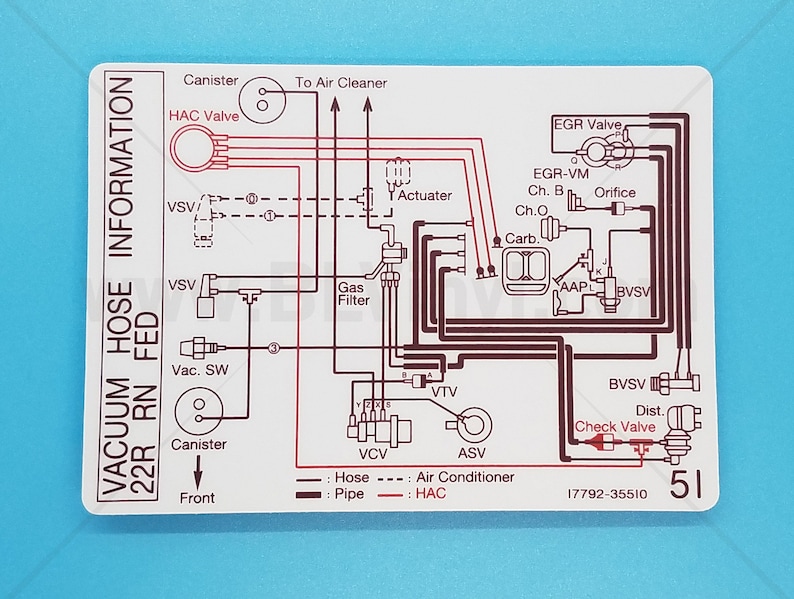 VACUUM HOSE INFORMATION
22R RN FED
Canister
To Air Cleaner
HAC Valve
EGR Valve
P
Q
R
EGR-VM
Actuater
Ch. B
Orifice
VSV
0
1
Ch.O
Carb.
J
K
VSV
Gas
Filter
AAP
L
BVSV
www.BLVinyl.com
3
Vac. SW
B
A
VTV
BVSV
Y
Z
X
S
Dist.
Check Valve
Canister
VCV
ASV
Front
: Hose
: Air Conditioner
: Pipe
: HAC
17792-35510
51